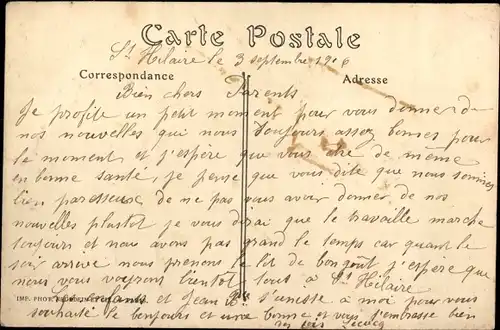 Carte Postale
St Hilaire le 3 septembre 1906
Correspondance Adresse
Bien chers Parents
Je profite un petit moment pour vous donner de
nos nouvelles qui nous toujours assez bonnes pour
le moment et j'espère que vous etre de même
en bonne santé, je pense que vous dite que nous sommes
bien paresseuse de ne pas vous avoir donner, de nos
nouvelles plustot je vous dirai que le travaille marche
toujours et nous avons pas grand le temps car quant le
soir arrive nous prenons le lit de bon goût j'espère que
nous vous voyrons bientot tous à St Hilaire
IMP. PHOT. et Jean s'unesse a moi pour vous
souhaité le bonjours et une bonne et vous j'embrasse bien